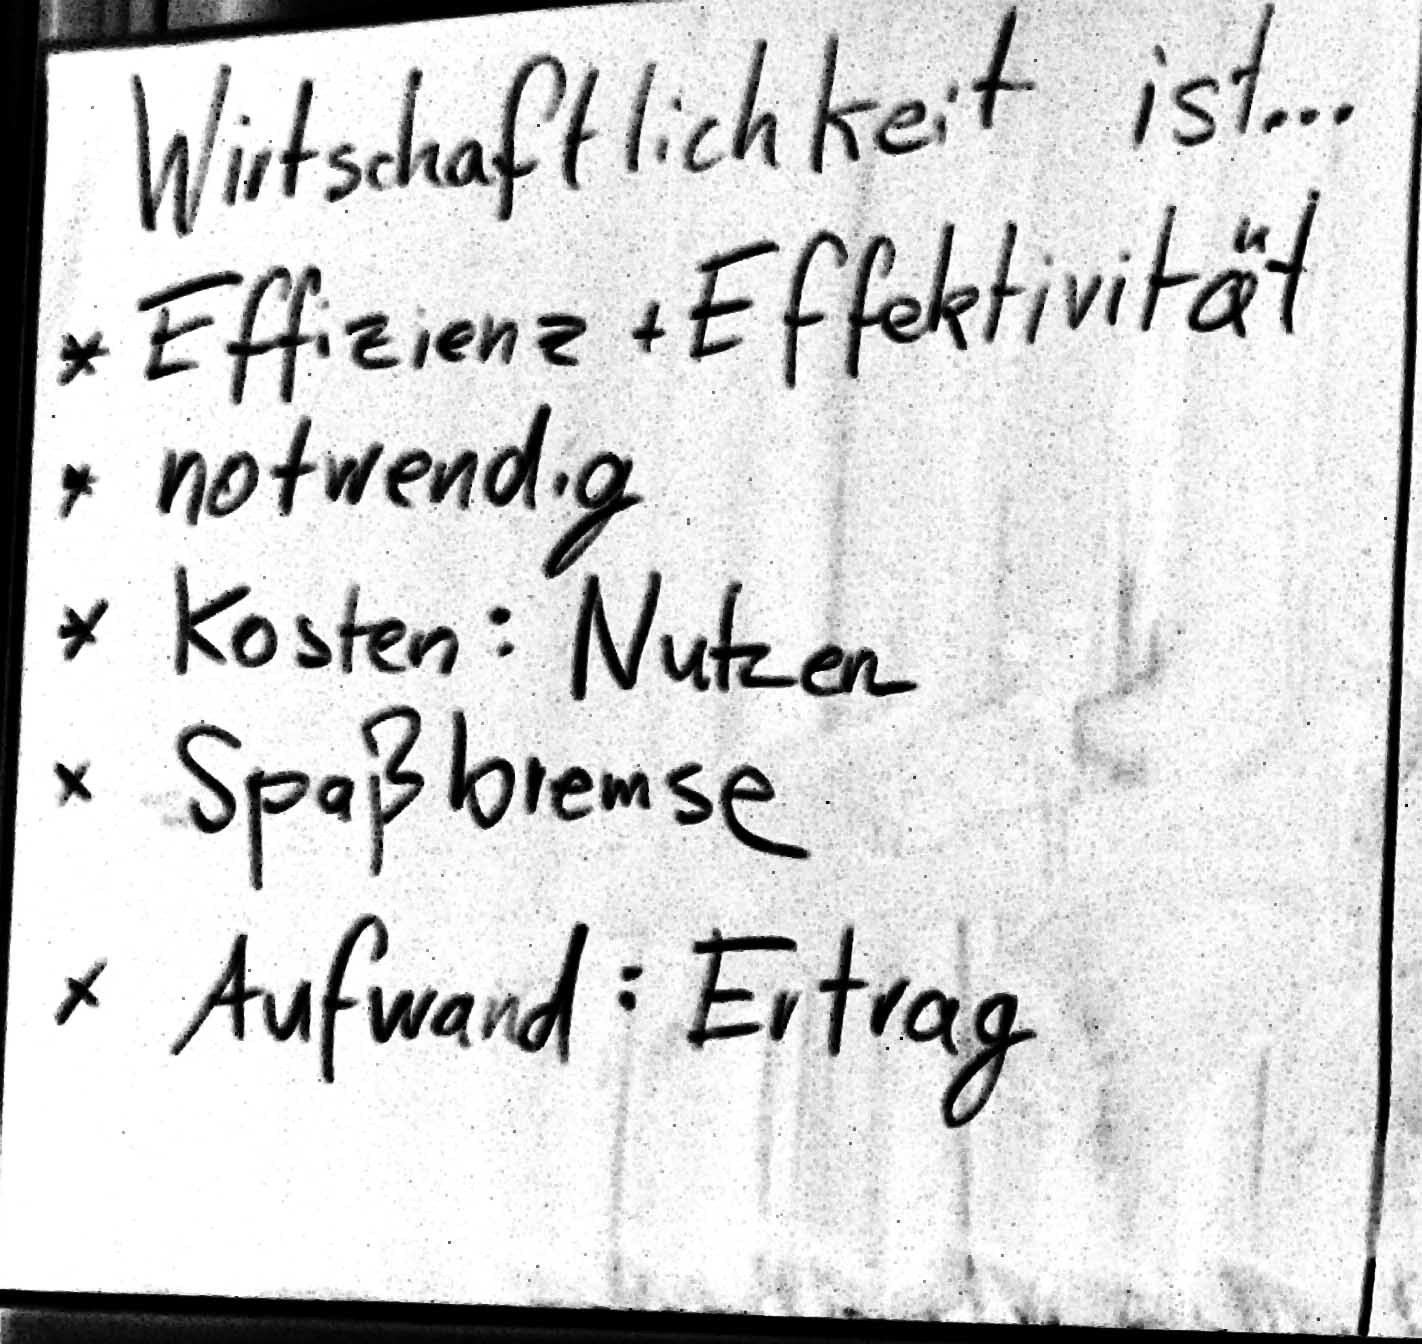 Wirtschaftlichkeit ist...
* Effizienz + Effektivität
* notwendig
* Kosten : Nutzen
* Spaßbremse
* Aufwand : Ertrag